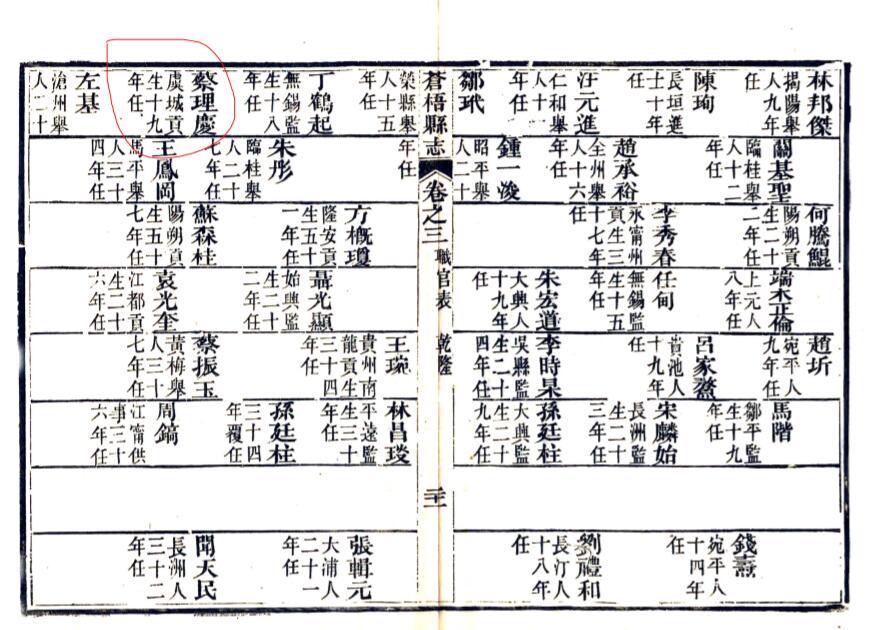 林邦傑
揭陽舉
人九年
任
陳珣
長垣進
士十年
任
汪元進
仁和舉
人十一
年任
鄒玳
榮縣舉
人十五
年任
關基聖
臨桂舉
人十二
年任
趙承裕
全州舉
人十六
任
鍾一浚
昭平舉
人二十
年任
何騰鯤
陽朔貢
生二十
二年任
李秀春
永甯州
貢生三
十七年
任
端木正倫
上元人
八年任
任甸
無錫監
生十五
年任
朱宏道
大興人
十九年
任
趙圻
宛平人
九年任
呂家鰲
貴池人
十九年
任
李時杲
吳縣監
生二十
四年任
馬階
鄒平監
生十九
年任
宋麟始
長洲監
生二十
三年任
孫廷柱
大興監
生二十
九年任
錢燾
宛平人
十四年
任
劉禮和
長汀人
十八年
任
蒼梧縣志
卷之三
職官表
乾隆
丁鶴起
無錫監
生十八
年任
蔡理慶
虞城貢
生十九
年任
左基
滄州舉
人二十
朱彤
臨桂舉
人二十
七年任
王鳳岡
馬平舉
人三十
四年任
方概瓊
隆安貢
生五十
一年任
蘇森桂
陽朔貢
生五十
七年任
聶光顯
始興監
生二十
二年任
袁光奎
江都貢
生二十
六年任
王琬
貴州南
龍貢生
三十四
年任
蔡振玉
黃梅舉
人三十
七年任
林昌琰
平遠監
生三十
年任
孫廷柱
三十四
年覆任
周鎬
江甯供
事三十
六年任
張輯元
大浦人
二十一
年任
聞天民
長洲人
三十二
年任